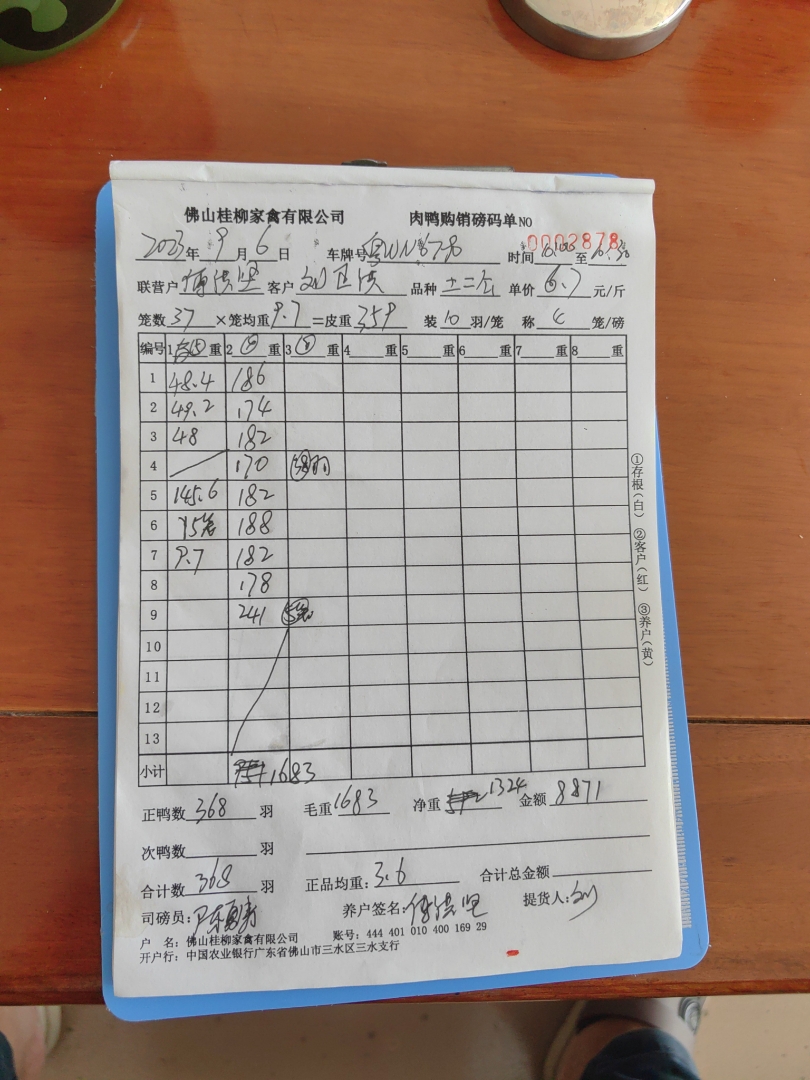 佛山桂柳家禽有限公司 肉鸭购销磅码单 NO 0002878
2023年 9月 6日 车牌号 粤 时间 至
联营户 客户 刘 品种 单价 6.7 元/斤
笼数 37 ×笼均重 9.7 =皮重 359 装 10 羽/笼 称 4 笼/磅
编号 1 重 2 重 3 重 4 重 5 重 6 重 7 重 8 重
1 48.4 186
2 49.2 174
3 48 182
4 170
5 145.6 182
6 188
7 9.7 182
8 178
9 241
10
11
12
13
小计 1683
正鸭数 368 羽 毛重 1683 净重 1324 金额 8871
次鸭数 羽
合计数 368 羽 正品均重: 3.6 合计总金额
司磅员: 养户签名: 提货人: 刘
户 名: 佛山桂柳家禽有限公司 账号: 444 401 010 400 169 29
开户行: 中国农业银行广东省佛山市三水区三水支行
①存根(白) ②客户(红) ③养户(黄)